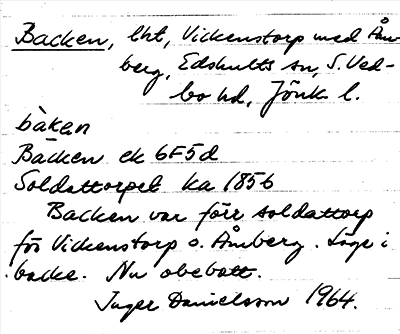 Backen, lht, Vickenstorp med Åm-
berg, Edshults sn, S. Ved-
bo hd, Jönk l.
bàken
Backen ek 6F5d
Soldattorpet ka 1856
Backen var förr soldattorp
för Vickenstorp o. Åmberg. Läge i
backe. Nu obebott.
Inger Danielsson 1964.